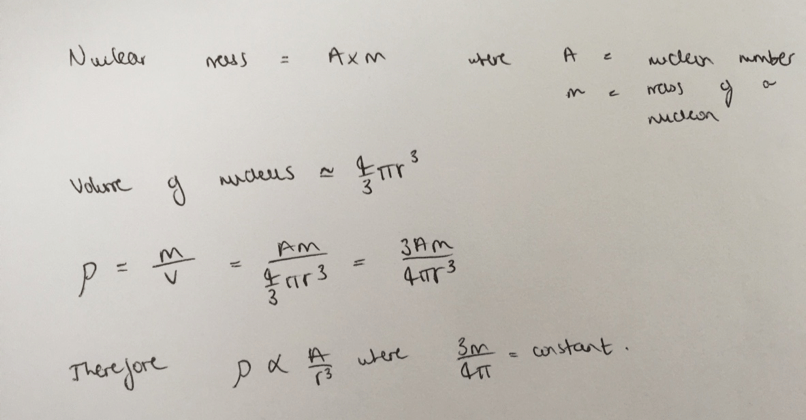 Nuclear mass = A×m where A = nucleon number
m = mass of a
nucleon
Volume of nucleus ≈ 4/3 πr³
ρ = m/V = Am / (4/3 πr³) = 3Am / 4πr³
Therefore ρ ∝ A/r³ where 3m/4π = constant.